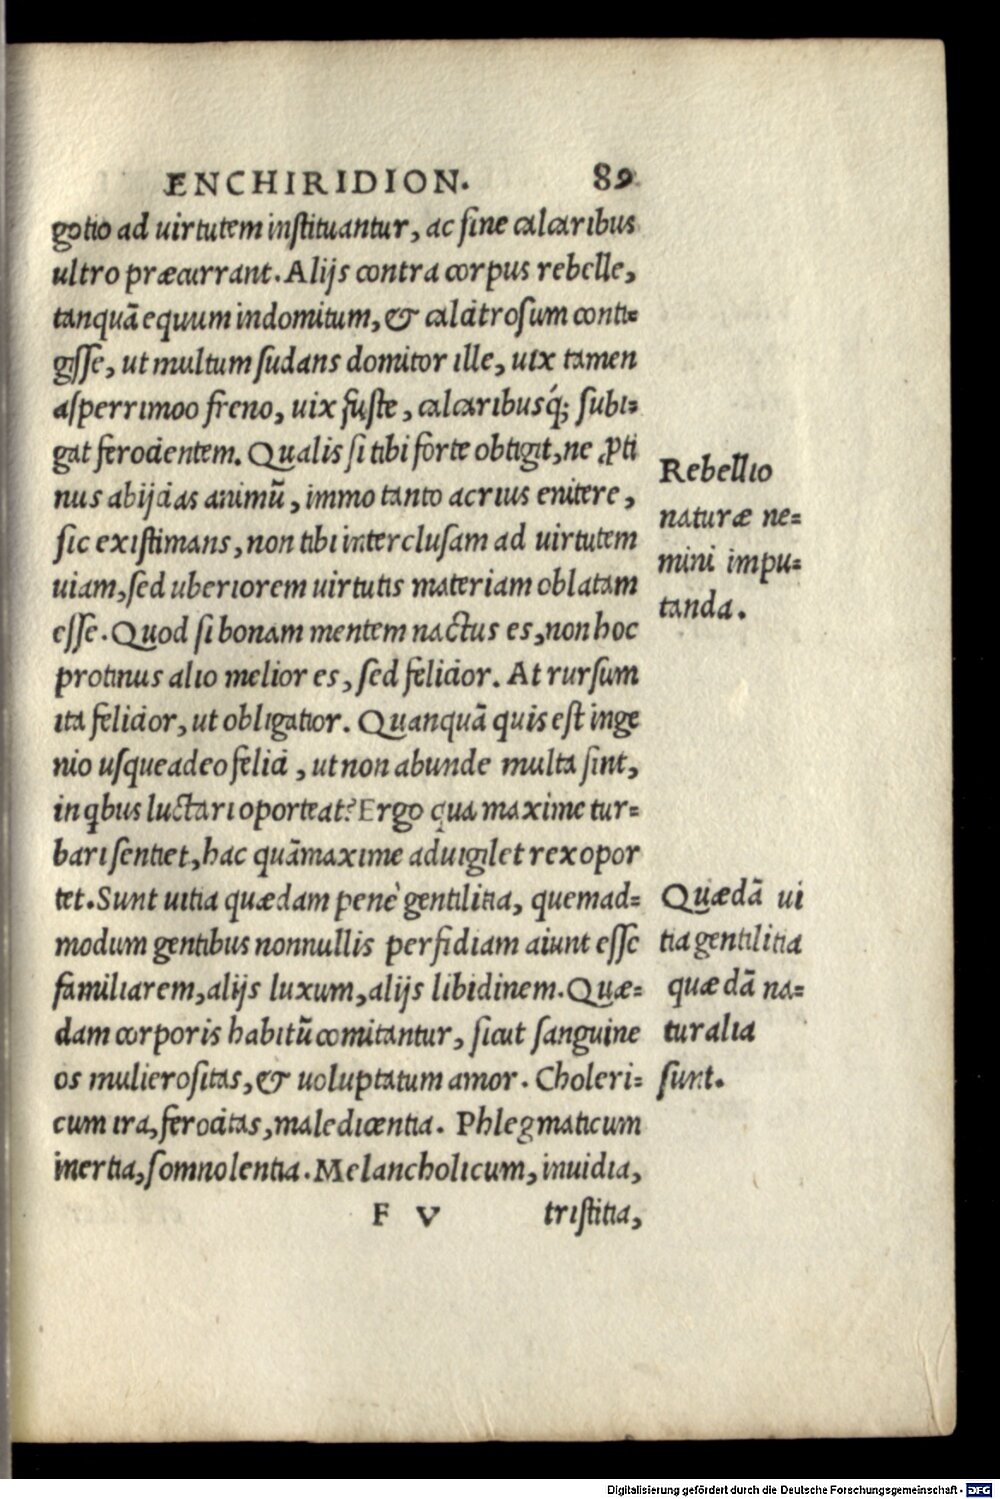 ENCHIRIDION. 89
gotio ad uirtutem instituantur, ac sine calcaribus
ultro præcurrant. Alijs contra corpus rebelle,
tanquã equum indomitum, & calcitrosum conti=
gisse, ut multum sudans domitor ille, uix tamen
asperrimoo freno, uix fuste, calcaribusq́; subi=
gat ferocientem. Qualis si tibi forte obtigit, ne ꝓti
nus abijcias animũ, immo tanto acrius enitere,
sic existimans, non tibi interclusam ad uirtutem
uiam, sed uberiorem uirtutis materiam oblatam
esse. Quod si bonam mentem nactus es, non hoc
protinus alio melior es, sed felicior. At rursum
ita felicior, ut obligatior. Quanquã quis est inge
nio usqueadeo felici, ut non abunde multa sint,
in qbus luctari oporteat? Ergo qua maxime tur=
bari sentiet, hac quãmaxime aduigilet rex opor
tet. Sunt uitia quædam penè gentilitia, quemad=
modum gentibus nonnullis perfidiam aiunt esse
familiarem, alijs luxum, alijs libidinem. Quæ=
dam corporis habitũ comitantur, sicut sanguine
os mulierositas, & uoluptatum amor. Choleri=
cum ira, ferocitas, maledicentia. Phlegmaticum
inertia, somnolentia. Melancholicum, inuidia,
F V tristitia,
Rebellio
naturæ ne=
mini impu=
tanda.
Quædã ui
tia gentilitia
quædã na=
turalia
sunt.
Digitalisierung gefördert durch die Deutsche Forschungsgemeinschaft - DFG